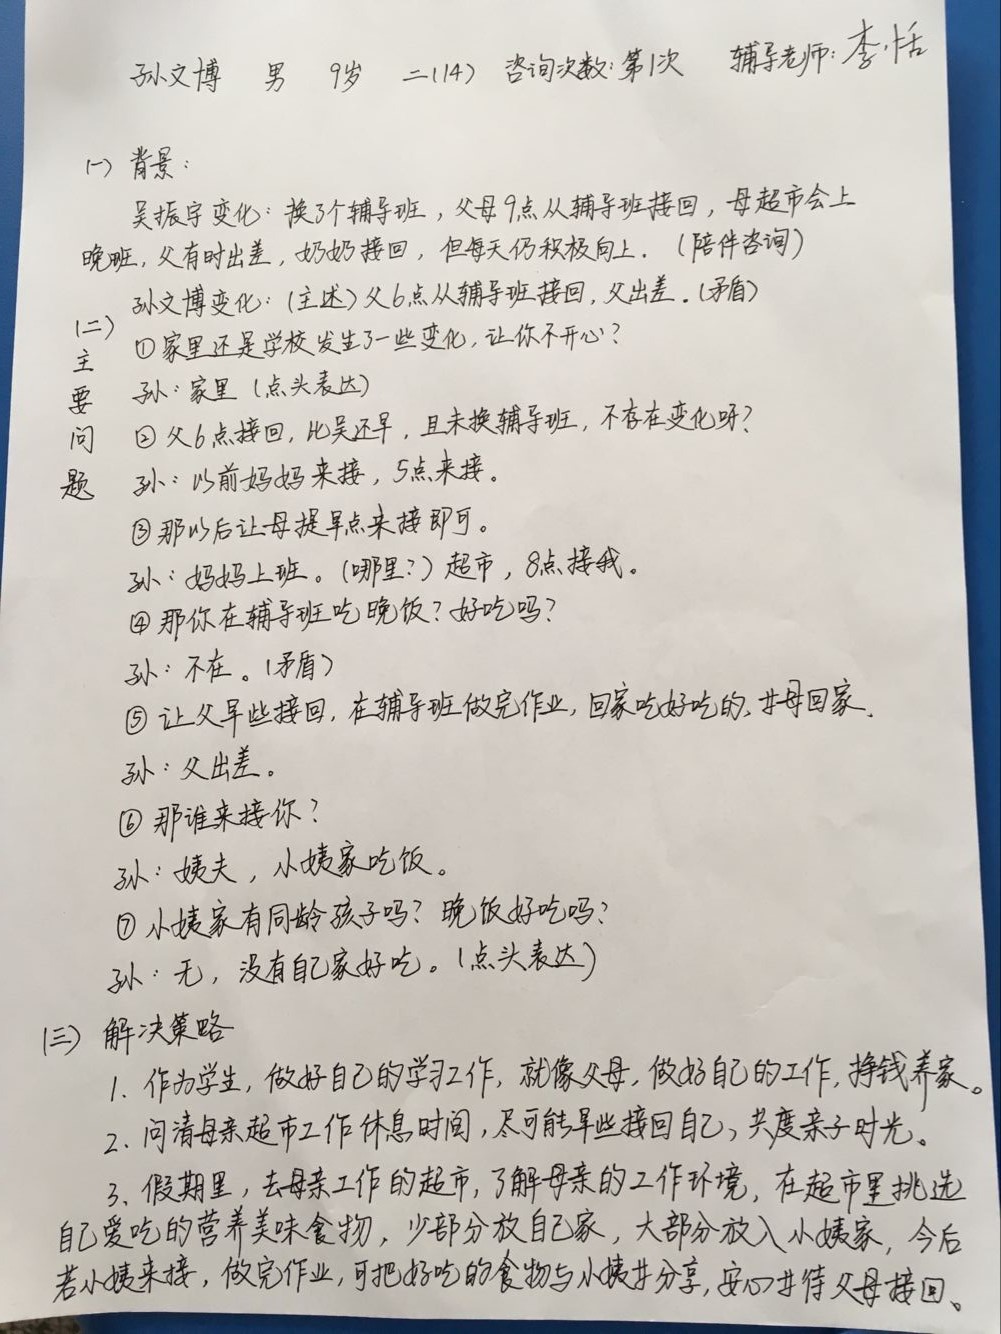 孙文博 男 9岁 二(14) 咨询次数:第1次 辅导老师:李恬
(一) 背景:
吴振宇变化:换了个辅导班,父母9点从辅导班接回,母超市会上
晚班,父有时出差,奶奶接回,但每天仍积极向上.(陪伴咨询)
孙文博变化:(主述)父6点从辅导班接回,父出差.(矛盾)
(二)主要问题
①家里还是学校发生了一些变化,让你不开心?
孙:家里(点头表达)
②父6点接回,比吴还早,且未换辅导班,不存在变化呀?
孙:以前妈妈来接,5点来接。
③那以后让母提早点来接即可。
孙:妈妈上班。(哪里?)超市,8点接我。
④那你在辅导班吃晚饭?好吃吗?
孙:不在。(矛盾)
⑤让父早些接回,在辅导班做完作业,回家吃好吃的、共母回家.
孙:父出差。
⑥那谁来接你?
孙:姨夫,小姨家吃饭。
⑦小姨家有同龄孩子吗?晚饭好吃吗?
孙:无,没有自己家好吃。(点头表达)
(三)解决策略
1.作为学生,做好自己的学习工作,就像父母,做好自己的工作,挣钱养家。
2.问清母亲超市工作休息时间,尽可能早些接回自己,共度亲子时光。
3、假期里,去母亲工作的超市,了解母亲的工作环境,在超市里挑选
自己爱吃的营养美味食物,少部分放自己家,大部分放入小姨家,今后
若小姨来接,做完作业,可把好吃的食物与小姨共分享,安心共待父母接回。